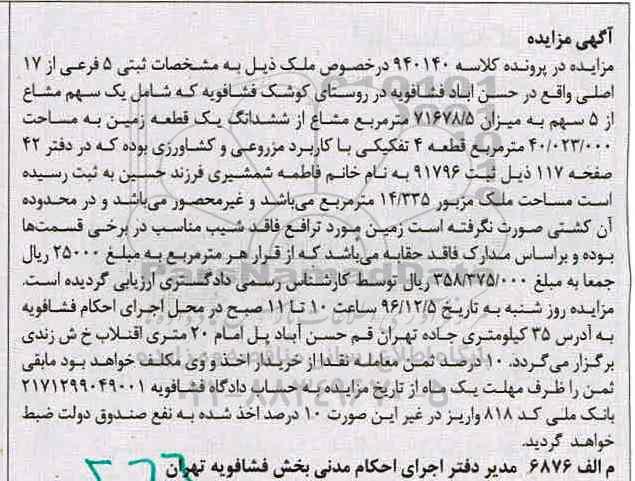 آگهی مزایده
مزایده در پرونده کلاسه ۹۴۰۱۴۰ درخصوص ملک ذیل به مشخصات ثبتی ۵ فرعی از ۱۷
اصلی واقع در حسن اباد فشافویه در روستای کوشک فشافویه که شامل یک سهم مشاع
از ۵ سهم به میزان ۷۱۶۷۸/۵ مترمربع مشاع از ششدانگ یک قطعه زمین به مساحت
۴۰/۰۲۳/۰۰۰ مترمربع قطعه ۴ تفکیکی با کاربرد مزروعی و کشاورزی بوده که در دفتر ۴۲
صفحه ۱۱۷ ذیل ثبت ۹۱۷۹۶ به نام خانم فاطمه شمشیری فرزند حسین به ثبت رسیده
است مساحت ملک مزبور ۱۴/۳۳۵ مترمربع می‌باشد و غیرمحصور می‌باشد و در محدوده
آن کشتی صورت نگرفته است زمین مورد ترافع فاقد شیب مناسب در برخی قسمت‌ها
بوده و براساس مدارک فاقد حقابه می‌باشد که از قرار هر مترمربع به مبلغ ۲۵۰۰۰ ریال
جمعا به مبلغ ۳۵۸/۳۷۵/۰۰۰ ریال توسط کارشناس رسمی دادگستری ارزیابی گردیده است.
مزایده روز شنبه به تاریخ ۹۶/۱۲/۵ ساعت ۱۰ تا ۱۱ صبح در محل اجرای احکام فشافویه
به آدرس ۳۵ کیلومتری جاده تهران قم حسن آباد پل امام ۲۰ متری انقلاب خ ش زندی
برگزار می‌گردد. ۱۰ درصد ثمن معامله نقدا از خریدار اخذ و وی مکلف خواهد بود مابقی
ثمن را ظرف مهلت یک ماه از تاریخ مزایده به حساب دادگاه فشافویه ۲۱۷۱۲۹۹۰۴۹۰۰۱
بانک ملی کد ۸۱۸ واریز در غیر این صورت ۱۰ درصد اخذ شده به نفع صندوق دولت ضبط
خواهد گردید.
م الف ۶۸۷۶ مدیر دفتر اجرای احکام مدنی بخش فشافویه تهران
ParsNamadData
پایگاه اطلاع رسانی مناقصه و مزایده
۰۲۱-۸۸۳۴۹۶۷۰-۵